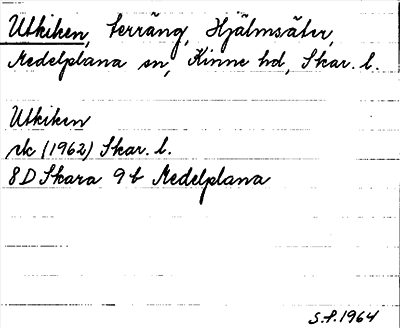 Utkiken, terräng, Hjälmsäter,
Medelplana sn, Kinne hd, Skar. l.
Utkiken
rk (1962) Skar. l.
8D Skara 9b Medelplana
S.F. 1964